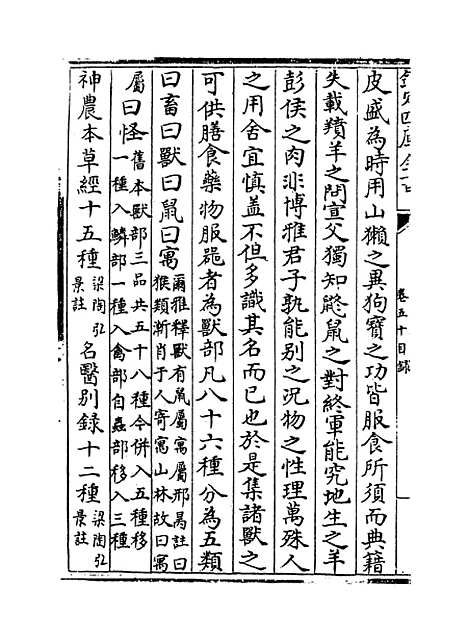 欽定四庫全書
卷五十目錄
皮盛為時用山獺之異狗寶之功皆服食所須而典籍
失載羵羊之問宣父獨知鼨鼠之對終軍能究地生之羊
彭侯之肉非博雅君子孰能別之況物之性理萬殊人
之用舍宜慎蓋不但多識其名而已也於是集諸獸之
可供膳食藥物服器者為獸部凡八十六種分為五類
曰畜曰獸曰鼠曰寓
爾雅釋獸有鼠屬寓屬邢昺註曰
猴類漸肖于人寄寓山林故曰寓
屬曰怪
舊本獸部三品共五十八種今併入五種移
一種入鱗部一種入禽部自蟲部移入三種
神農本草經十五種
梁陶弘
景註
名醫別錄十二種
梁陶弘
景註